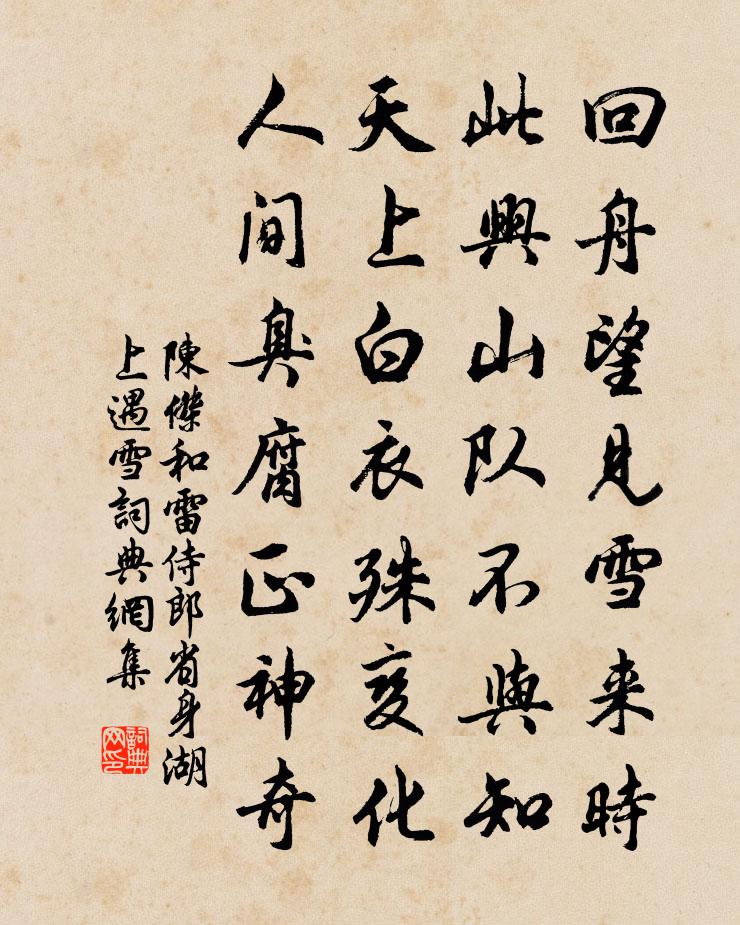 回舟望見雪来時
此興山队不與知
天上白衣殊变化
人间臭腐正神奇
陳傑和雷侍郎省身湖
上遇雪詞典網集
詞典
网印